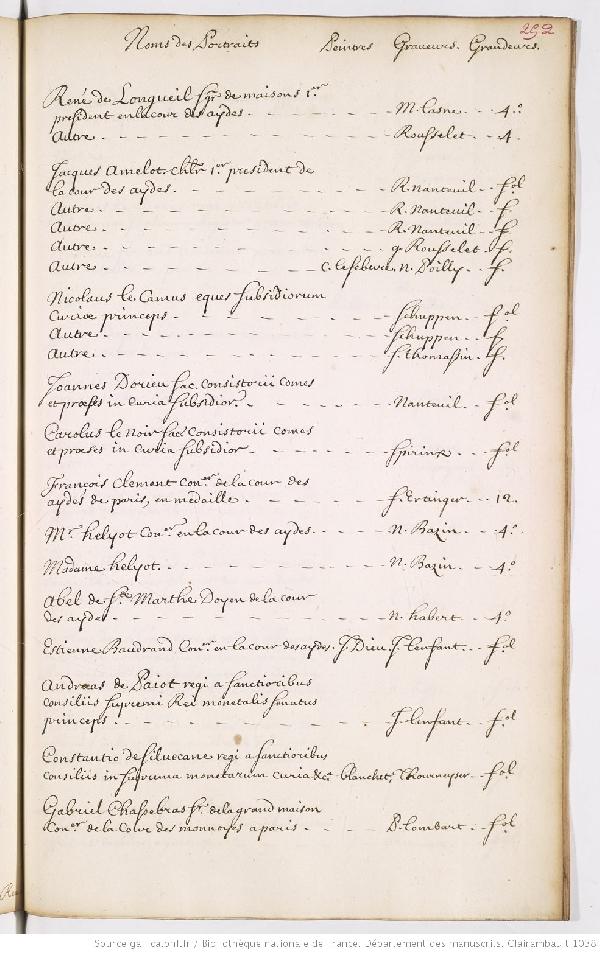 292
Noms des Portraits Peintres Graveurs. Grandeurs.
René de Longueil sgr. de maisons 1.er
president en la cour des aydes. - - - - M. lasne - - 4.o
Autre - - - - Rousselet - - 4.
Jacques Amelot chlr 1.er president de
la cour des aydes. - - - - R. nanteuil - - fol
Autre - - - - R. Nanteuil - - f.
Autre - - - - R. Nanteuil - - f
Autre - - - - g. Rousselet - - f.
Autre - - - - C. lefebvre. N. Poilly - - f.
Nicolaus le Camus eques subsidiorum
Curiæ princeps - - - - Schuppen - - fol
Autre - - - - Schuppen - - f.
Autre - - - - S. thomassin - - f.
Joannes Dorieu sac. consistorii comes
et præses in curia subsidior. - - - - Nanteuil - - fol
Carolus le Noir sac. consistorii comes
et præses in curia subsidior - - - - Spirinx - - fol
François Clement Con.er de la cour des
aydes de paris, en medaille - - - - f. Ertinger - - 12.
M.r helyot Con.er en la cour des aydes - - - - N. Bazin - - 4.o
Madame helyot. - - - - N. Bazin - - 4.o
Abel de S.te Marthe Doyen de la cour
des aydes - - - - N. habert - - 4.o
Estienne Baudrand Con.er en la cour des aydes. J. Dieu. J. lenfant - - fol
Andreas de Paiot regi a sanctioribus
consiliis supremi Rei monetalis senatus
princeps - - - - J. lenfant - - fol
Constantio de siluecane regi a sanctioribus
consiliis in suprema monetarum curia &c. blanchet, Thourneyser - - fol
Gabriel Chassebras sr. de la grand maison
Con.er de la Cour des monnoyes a paris - - - - P. lombart - - fol
Source gallica.bnf.fr / Bibliothèque nationale de France. Département des manuscrits. Clairambault 1038